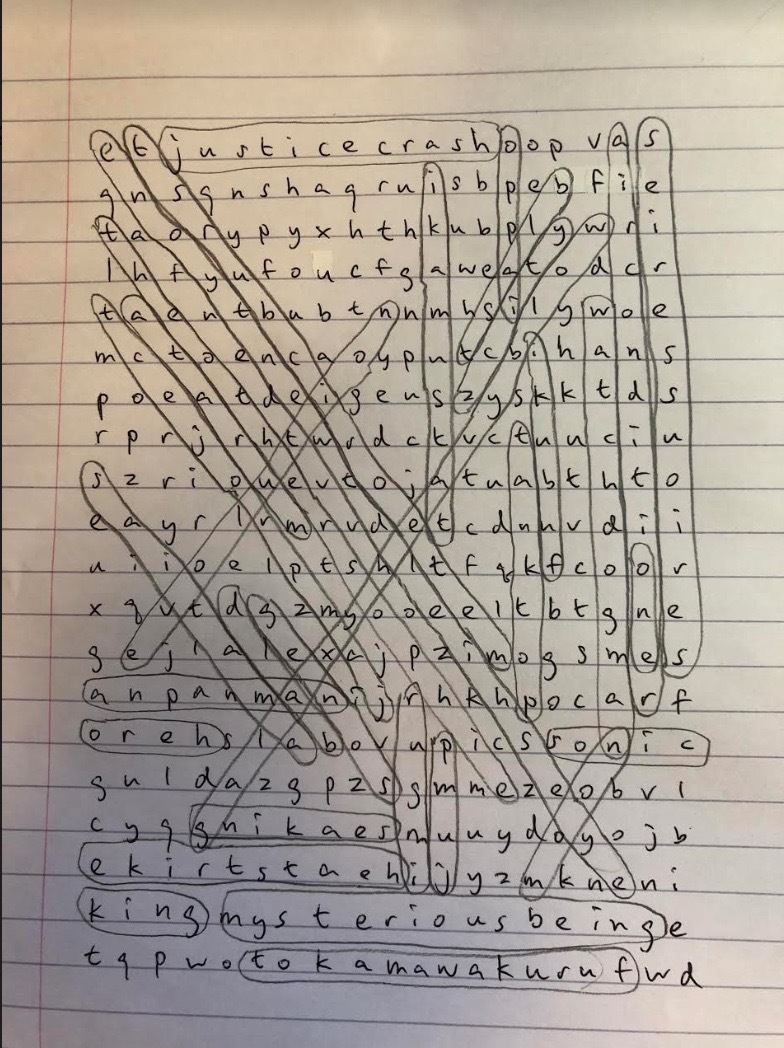 e t j u s t i c e c r a s h o o p v a s
g n s g n s h a q r u i s b p e b f i e
t a o r y p y x h t h k u b p l y w r i
l h f y u f o u c f g a w e g t o d c r
t a e n t b u b t n n m h s i l y w o e
m c t o e n c a o y p u t c b i h a n s
p o e a t d e i g e u s z y s k k t d s
r p r j r h t w r d c k v c t u u c i u
s z r i o u e v t o j a t u a b t h t o
e a y r l r m r v d e t c d u h v d i i
u i i o e l p t s h l t f q k f c o o r
x q v t d g z m y o o e e l t b t g n e
g e j l a l e x a j p z i m o g s m e s
a n p a n m a n i j r h k h p o c a r f
o r e h s l a b o v u p i c s s o n i c
g u l d a z g p z s g m m e z e o b v l
c y q g n i k a e s m u u y d o y o j b
e k i r t s t a e h i j y z m k n e n i
k i n g m y s t e r i o u s b e i n g e
t q p w o t o k a m a w a k u r u f w d